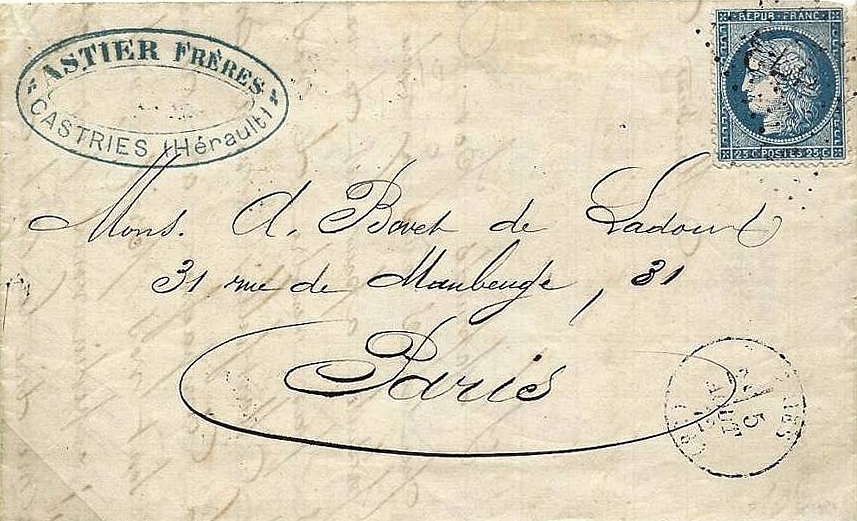 ASTIER FRÈRES
CASTRIES (Hérault)
REPUB · FRANC ·
25 C POSTES 25 C
Mons. A. Bovet de Ladours
31 rue de Maubeuge, 31
Paris
5
AOUT